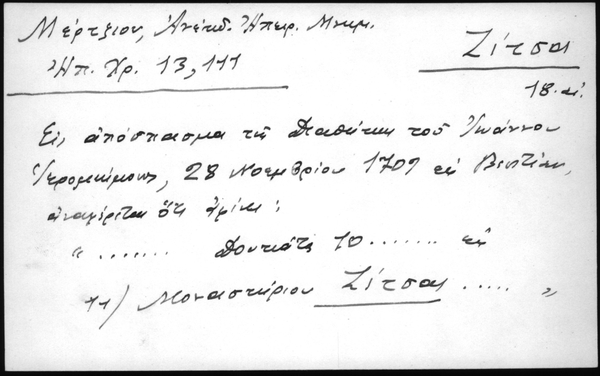 Μέρτζιου, Ἀνέκδ. Ἠπειρ. Μνημ.
Ἠπ. Χρ. 13, 111
Ζίτσα
18. αἰ.
Εἰς ἀπόσπασμα τῆς Διαθήκης τοῦ Ἰωάννου
Ἱερομονάχου, 28 Νοεμβρίου 1709 ἐν Βενετίᾳ,
ἀναφέρεται ὅτι ἀφίνει :
" ....... Δουκάτα 10 ....... εἰς
τὸ Μοναστήριον Ζίτσα ..... "